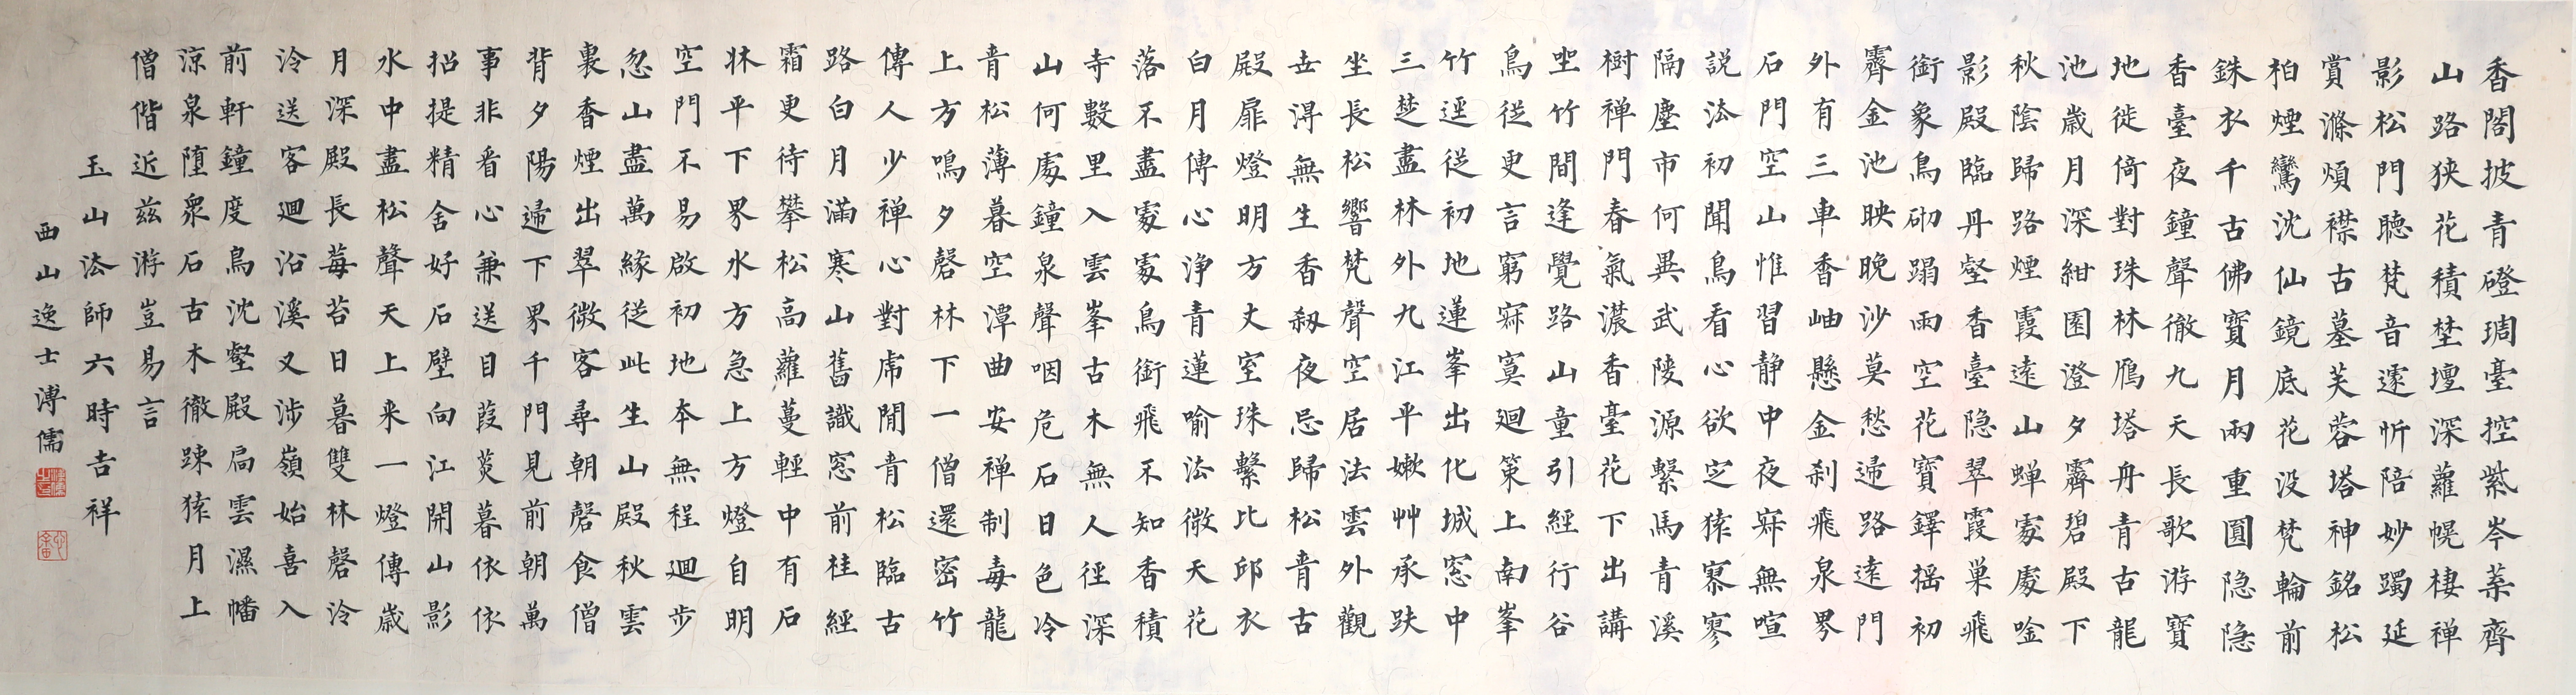 香閣披青磴琱臺控紫岑葉齊
山路狭花積埜壇深蘿幌棲禅
影松門聴梵音遽忻陪妙躅延
賞滌煩襟古墓芙蓉塔神銘松
柏煙鸞沈仙鏡底花没梵輪前
銖衣千古佛寶月兩重圓隐隐
香臺夜鐘聲徹九天長歌游寶
地徙倚對珠林鴈塔丹青古龍
池歲月深紺園澄夕霽碧殿下
秋陰歸路煙霞遠山蝉處處唫
影殿臨丹壑香臺隐翠霞巢飛
銜象鳥砌蹋雨空花寶鐸摇初
霽金池映晚沙莫愁歸路遠門
外有三車香岫懸金刹飛泉界
石門空山惟習静中夜寂無喧
説法初聞鳥看心欲定猿寥寥
隔塵市何異武陵源繫馬青溪
樹禅門春氣濃香臺花下出講
坐竹間逢覺路山童引經行谷
鳥從更言窮寂寞迴策上南峯
竹逕從初地蓮峯出化城窓中
三楚盡林外九江平嫰艸承趺
坐長松響梵聲空居法雲外觀
世得無生香刹夜忌歸松青古
殿扉燈明方丈室珠繫比邱衣
白月傳心浄青蓮喻法微天花
落不盡處處鳥銜飛不知香積
寺數里入雲峯古木無人徑深
山何處鐘泉聲咽危石日色冷
青松薄暮空潭曲安禅制毒龍
上方鳴夕磬林下一僧還密竹
傳人少禅心對虎閒青松臨古
路白月滿寒山舊識窓前桂經
霜更待攀松高蘿蔓輕中有石
牀平下界水方急上方燈自明
空門不易啟初地本無程迴步
忽山盡萬緣從此生山殿秋雲
裏香煙出翠微客尋朝磬食僧
背夕陽歸下界千門見前朝萬
事非看心兼送目葭菼暮依依
招提精舍好石壁向江開山影
水中盡松聲天上来一燈傳歲
月深殿長莓苔日暮雙林磬泠
泠送客迴沿溪又涉嶺始喜入
前軒鐘度鳥沈壑殿扃雲濕幡
涼泉堕衆石古木徹踈猿月上
僧偕近兹游豈易言
玉山法師六時吉祥
西山逸士溥儒